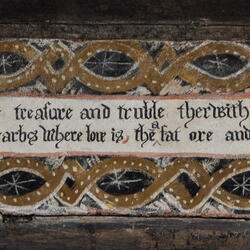 treasure and truble therwith
earbs Where loue is, the a fat oxe and